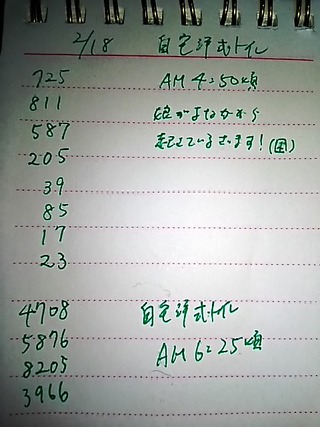 2/18 自宅洋式トイレ
725 AM 4:50頃
811 娘がよなかから
587 起きているざます!(困)
205
39
85
17
23
4708 自宅洋式トイレ
5876 AM 6:25頃
8205
3966